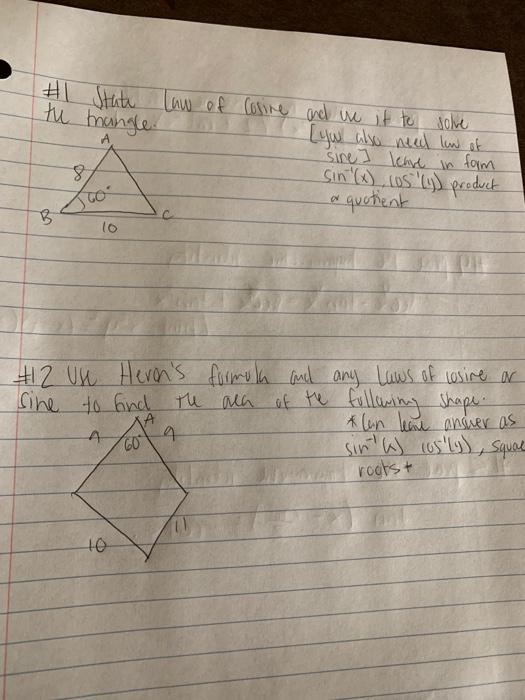 #1 State Law of Cosine and use it to solve
the triangle.
[you also need law of
sine] leave in form
sin⁻¹(x), cos⁻¹(y) product
or quotient
A
8
60°
B
C
10
#2 Use Heron's formula and any Laws of cosine or
Sine to find the area of the following shape.
* Can leave answer as
sin⁻¹(x) cos⁻¹(y), square
roots
A
9
9
60°
10
11